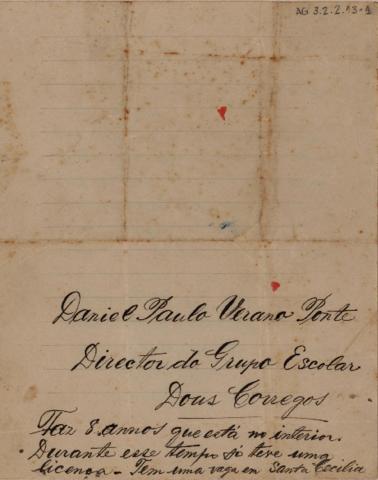 AG 3.2.2.13-1
Daniel Paulo Verano Ponte
Director do Grupo Escolar
Dous Corregos
Faz 8 annos que está no interior.
Durante esse tempo só teve uma
licença - Tem uma vaga em Santa Cecilia